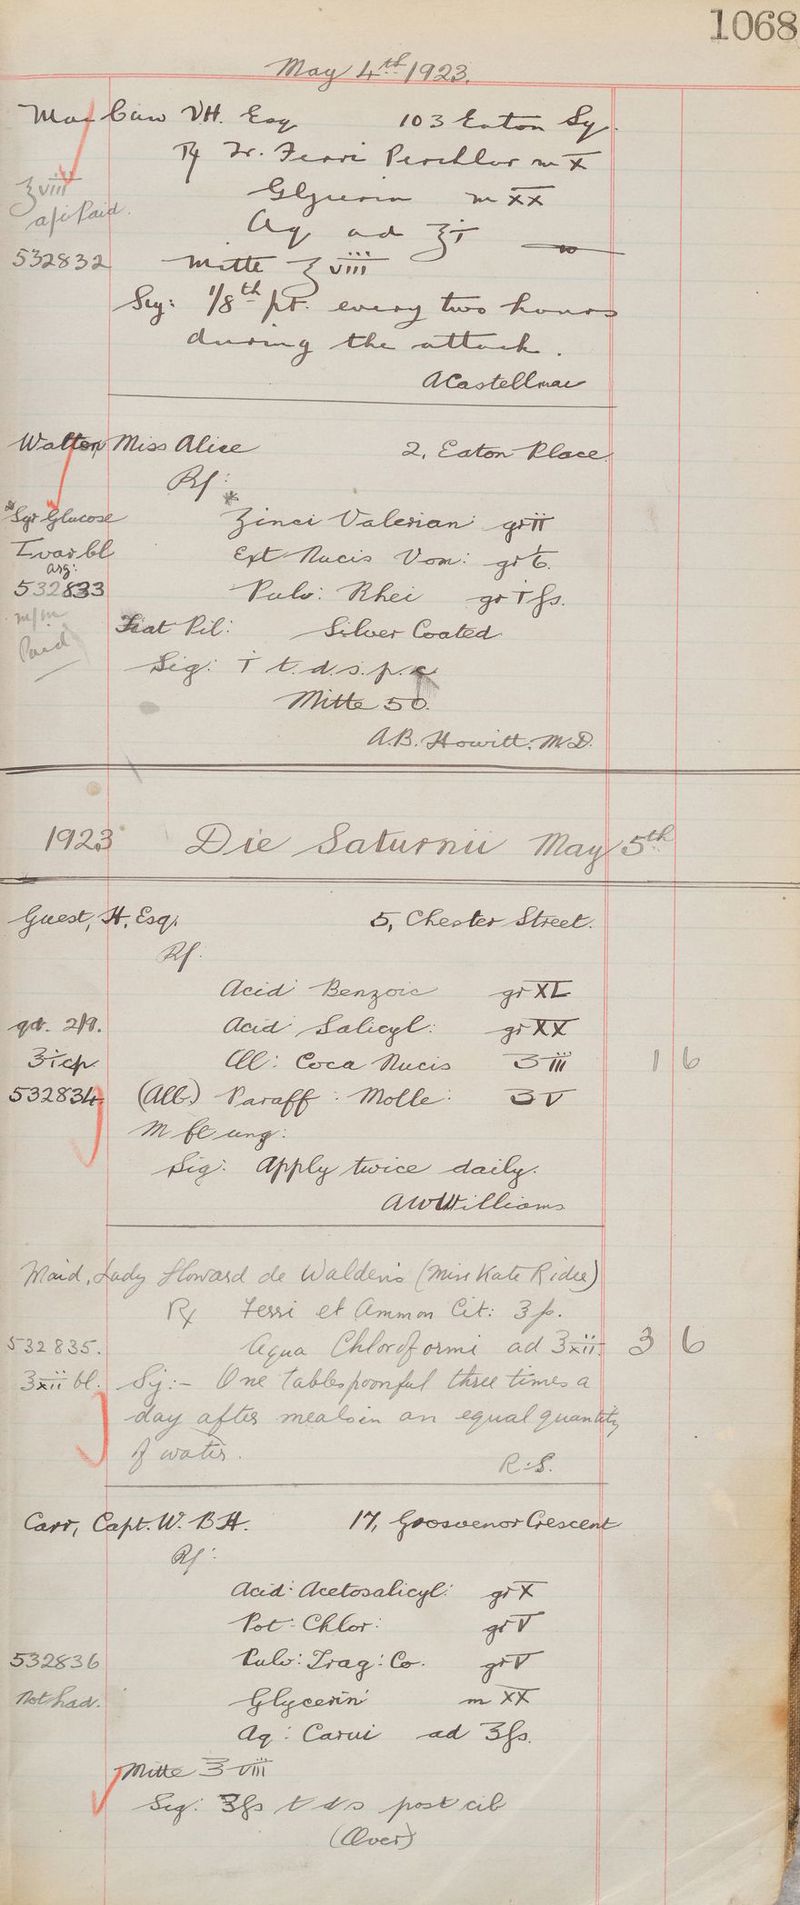 1068
May 4th 1923.
MacCaw VH. Esq 103 Eaton Sq.
℞ Tr. Ferri Perchlor m X
ʒviii Glycerin m XX
a/c Paid. Aq ad ʒi
532832 Mitte ʒviii
Sig: 1/8th pt. every two hours
during the attack.
A Castellmae
Walton, Miss Alice 2, Eaton Place.
Rf:
*Syr Glucose * Zinci Valerian: gr ii
I var bl Ext Nucis Vom: gr ⅙.
arg:
532833 Pulv: Rhei gr i fs.
m/m Fiat Pil: Silver Coated
Paid Sig: i t.d.s.p.c
Mitte 50.
A.B. Howitt. M.D.
1923 Die Saturnii May 5th
Guest, H, Esq. 5, Chester Street.
Rf.
Acid Benzoic gr XL
qt. 2/9. Acid Salicyl: gr XX
ʒi cp Ol: Coca Nucis ʒiii 1 6
532834 (Alb) Paraff: Molle: ʒV
M ft ung:
Sig: Apply twice daily.
AW Williams
Maid, Lady Howard de Walden's (Miss Kate Ridee)
℞ Ferri et Ammon Cit: ʒfs.
532835. Aqua Chloroformi ad ʒxii. 3 6
ʒxii bl. Sig:- One tablespoonful three times a
day after meals in an equal quantity
of water.
R.S.
Carr, Capt. W. B H. 17, Grosvenor Crescent
Rf:
Acid: Acetosalicyl: gr X
Pot: Chlor: gr V
532836 Pulv: Trag: Co. gr V
Not had. Glycerin m XX
Aq: Carui ad ʒfs.
Mitte ʒviii
Sig: ʒfs t d s post cib
(Over)